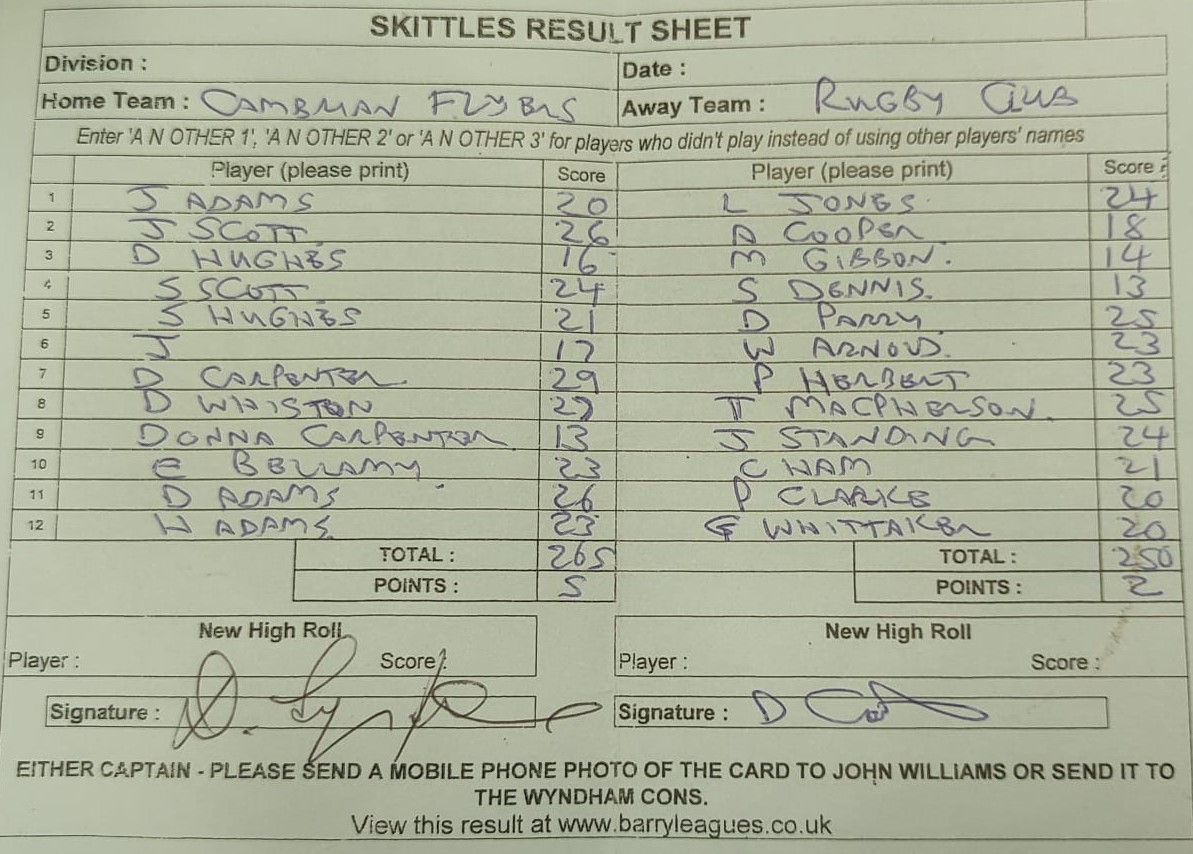 SKITTLES RESULT SHEET
Division : Date :
Home Team : CAMBRIAN FLYERS Away Team : RUGBY CLUB
Enter 'A N OTHER 1', 'A N OTHER 2' or 'A N OTHER 3' for players who didn't play instead of using other players' names
Player (please print) Score Player (please print) Score
1 J ADAMS 20 L JONES 24
2 J SCOTT 26 A COOPER 18
3 D HUGHES 16 M GIBBON. 14
4 S SCOTT 24 S DENNIS. 13
5 S HUGHES 21 D PARRY 25
6 J 17 W ARNOLD. 23
7 D CARPENTER 29 P HERBERT 23
8 D WHISTON 27 MACPHERSON. 25
9 DONNA CARPENTER 13 J STANDING 24
10 E BELLAMY 23 C HAM 21
11 D ADAMS 26 P CLARKE 20
12 H ADAMS 23 G WHITTAKER 20
TOTAL : 265 TOTAL : 250
POINTS : 5 POINTS : 2
New High Roll New High Roll
Player : Score : Player : Score :
Signature : Signature : D
EITHER CAPTAIN - PLEASE SEND A MOBILE PHONE PHOTO OF THE CARD TO JOHN WILLIAMS OR SEND IT TO
THE WYNDHAM CONS.
View this result at www.barryleagues.co.uk